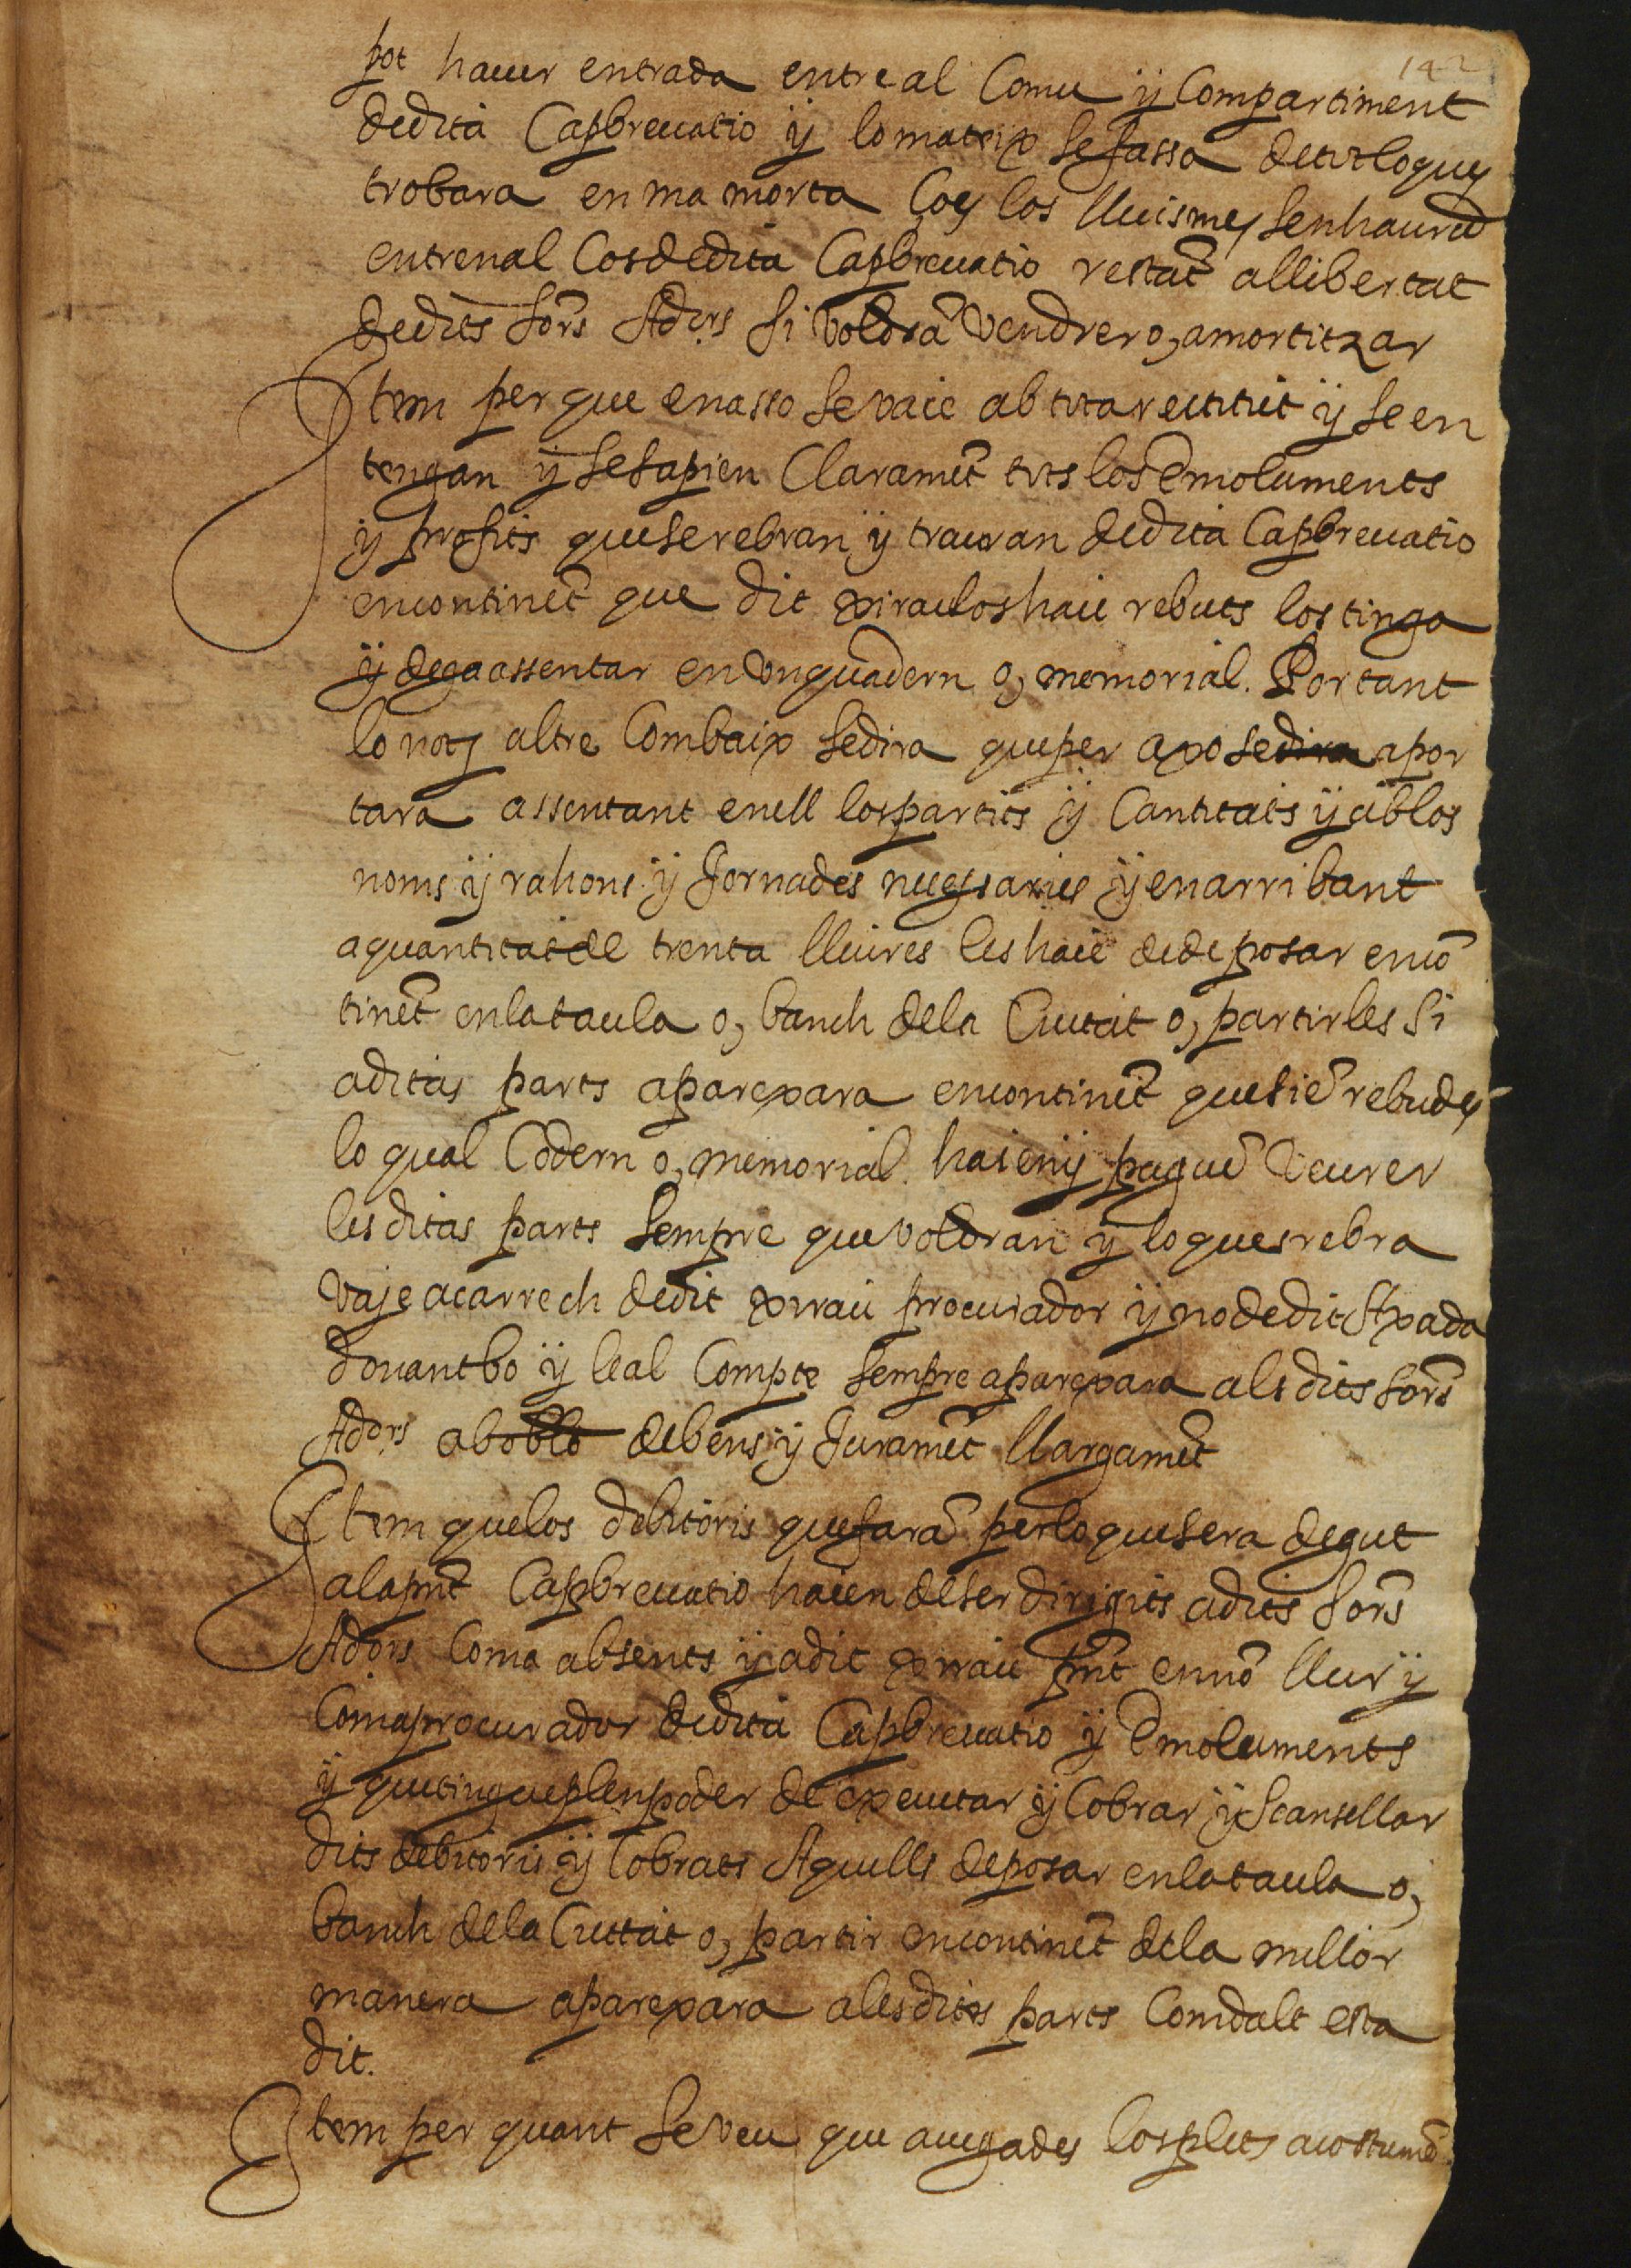 142
pot hauer entrada entre al Comu ÿ Compartiment
dedita Capbreuatio ÿ lo mateix se fassa de tot lo ques
trobara en ma morta Ço es los lluismes sen hauran
entren al Cos dedita Capbreuatio restāt allibertat
dedits sōrs Adors si voldrā vendrer o, amortitzar
Item per que en asso se vaie ab tota rectitut ÿ se en
tengan ÿ se sapien Claramēt tots los Emoluments
ÿ profits que se rebran ÿ trauran dedita Capbreuatio
encontinēt que dit xirau los haie rebuts los tinga
ÿ dega assentar en vn quadern o, memorial. Portant
lo not altre Com baix se dira que per axo se dira apor
tara assentant en ell los partits ÿ Cantitats ÿ ab los
noms ÿ rahons ÿ Jornades necessaries ÿ en arribant
a quantitat de trenta lliures les haie de deposar encō
tinēt en la taula o, banch de la Ciutat o, partirles si
a ditas parts aparexara encontinēt que siē rebudes
lo qual Codern o, memorial haien ÿ puguē veurer
les ditas parts sempre que voldran ÿ lo ques rebra
vaje a carrech de dit xirau procurador ÿ no de dit Stxada
donant bo ÿ leal Compte sempre aparexara als dits sōrs
Adors ab oblō de bens ÿ Juramēt llargamēt
Item que los debitoris que farā per lo que sera degut
a la pnt Capbreuatio haien de ser dirigits a dits sōrs
Adors Com a absents ÿ a dit xirau pnt en nō llur ÿ
Com a procurador dedita Capbreuatio ÿ Emoluments
ÿ que tingue plen poder de executar ÿ Cobrar ÿ Scansellar
dits debitoris ÿ Cobrats Aquells deposar en la taula o,
banch de la Ciutat o, partir encontinēt de la millor
manera aparexara a les dites parts Com dalt esta
dit.
Item per quant se veu que auegades los plets acostumē